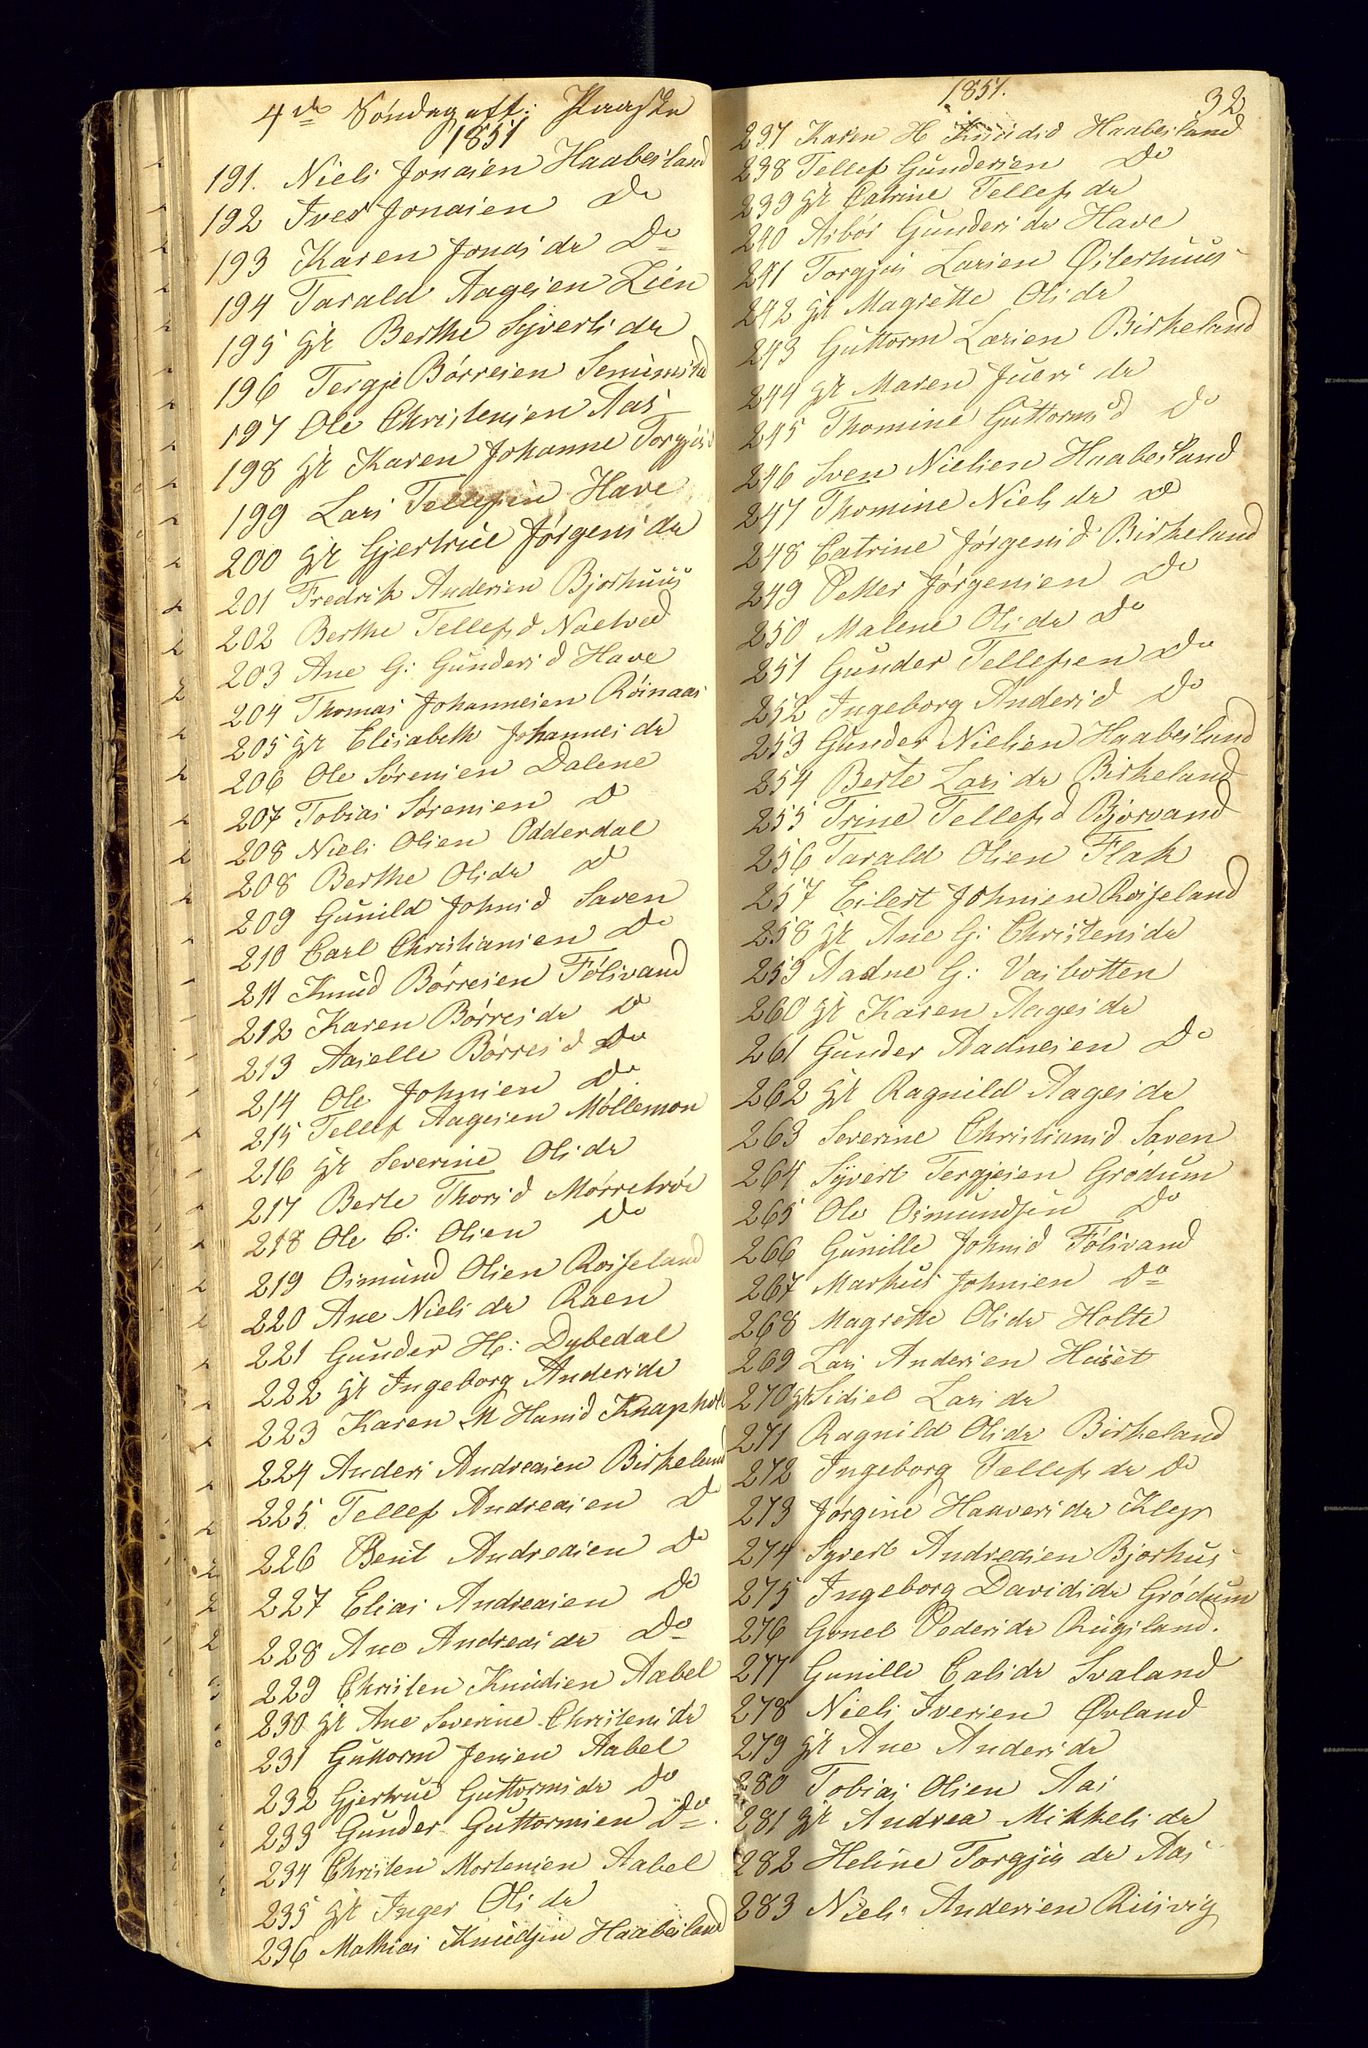 4de Søndag eft: Paaske
1851
191. Niels Jonasen Haabesland
192 Iver Jonasen Do
193 Karen Jonas dr Do
194 Tarald Aagesen Lien
195 gr Berthe Syverts dr
196 Tergje Børresen
197 Ole Christensen Aas
198 gr Karen Johanne Torgjus d
199 Lars Tellefsen Have
200 gr Gjertrue Jørgens dr
201 Fredrik Andersen Bjorhuus
202 Berthe Tellefs d
203 Ane G: Gunders d Have
204 Thomas Johannesen Röinaas
205 gr Elisabeth Johannes dr
206 Ole Sörensen Dalene
207 Tobias Sörensen Do
208 Niels Olsen Odderdal
208 Berthe Ols dr Do
209 Gunild Johns d Saven
210 Carl Christiansen Do
211 Knud Børresen Fölsvand
212 Karen Børres dr Do
213 Aaselle Børres d Do
214 Ole Johnsen Do
215 Tellef Aagesen Møllemon
216 gr Severine Ols dr
217 Berte Thors d
218 Ole C: Olsen Do
219 Osmund Olsen Rosseland
220 Ane Niels dr Raen
221 Gunder H: Dybedal
222 gr Ingeborg Anders dr
223 Karen M Hans d Knaphol
224 Anders Andreasen Birkeland
225. Tellef Andreasen Do
226 Bent Andreasen Do
227 Elias Andreasen Do
228 Ane Andreas dr Do
229 Christen Knudsen Aabel
230 gr Ane Severine Christens dr
231 Guttorm Jensen Aabel
232 Gjertrue Guttorms dr Do
233 Gunder Guttormsen Do
234 Christen Mortensen Aabel
235 gr Inger Ols dr
236 Mathias Knudsen Haabesland
1851.
32
237 Karen H Knuds d Haabesland
238 Tellef Gundersen Do
239 gr Catrine Tellefs dr
240 Asbör Gunders dr Have
241 Torgjus Larsen Østerhuus
242 gr Magrette Ols dr
243 Guttorm Larsen Birkeland
244 gr Maren Juers dr
245 Thomine Guttorms d Do
246 Sven Nielsen Haabesland
247 Thomine Niels dr Do
248 Catrine Jørgens d Birkeland
249 Petter Jørgensen Do
250 Malene Ols dr Do
251 Gunder Tellefsen Do
252 Ingeborg Anders d Do
253 Gunder Nielsen Haabesland
254 Berte Lars dr Birkeland
255 Trine Tellefs d Bjorvand
256 Tarald Olsen Flak
257 Eilert Johnsen Rosseland
258 gr Ane G: Christens dr
259 Aadne G: Vasbotten
260 gr Karen Aages dr
261 Gunder Aadnesen Do
262 gr Ragnild Aages dr
263 Severine Christians d Saven
264 Syvert Tergjesen Grødum
265 Ole Osmundsen Do
266 Gunille Johns d Fölsvand
267 Markus Johnsen Do
268 Magrette Ols dr Holte
269 Lars Andersen Huset
270 gr Sidsel Lars dr
271 Ragnild Ols dr Birkeland
272 Ingeborg Tellefs dr Do
273 Jørgine Haavers dr Kleps
274 Syvert Andreasen Bjorhus
275 Ingeborg Davids dr Grødum
276 Gonel Peders dr Rugsland.
277 Gunille Cals dr Svaland
278 Niels Iversen Øvland
279 gr Ane Anders dr
280 Tobias Olsen Aas
281 gr Andrea Mikkels dr
282 Heline Torgjus dr Aas
283 Niels Andersen Riisvig